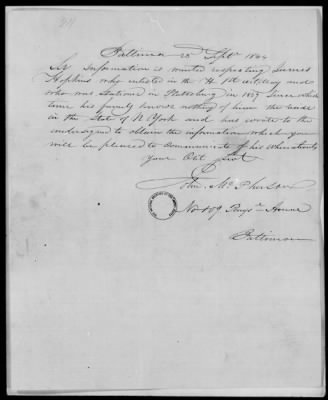 Baltimore 25 Sept 1844
Sir Information is wanted respecting James
Hopkins who enlisted in the 1st artilery and
who was Stationed in Plattsburg in 1839 Since which
time his family knows nothing of him
in the State of N York and has wrote to the
undersigned to obtain the information which you
will be pleased to communicate of his whereabouts
your Obt Svt
Jno. McPherson
No 109 Pensa Avenue
Baltimore